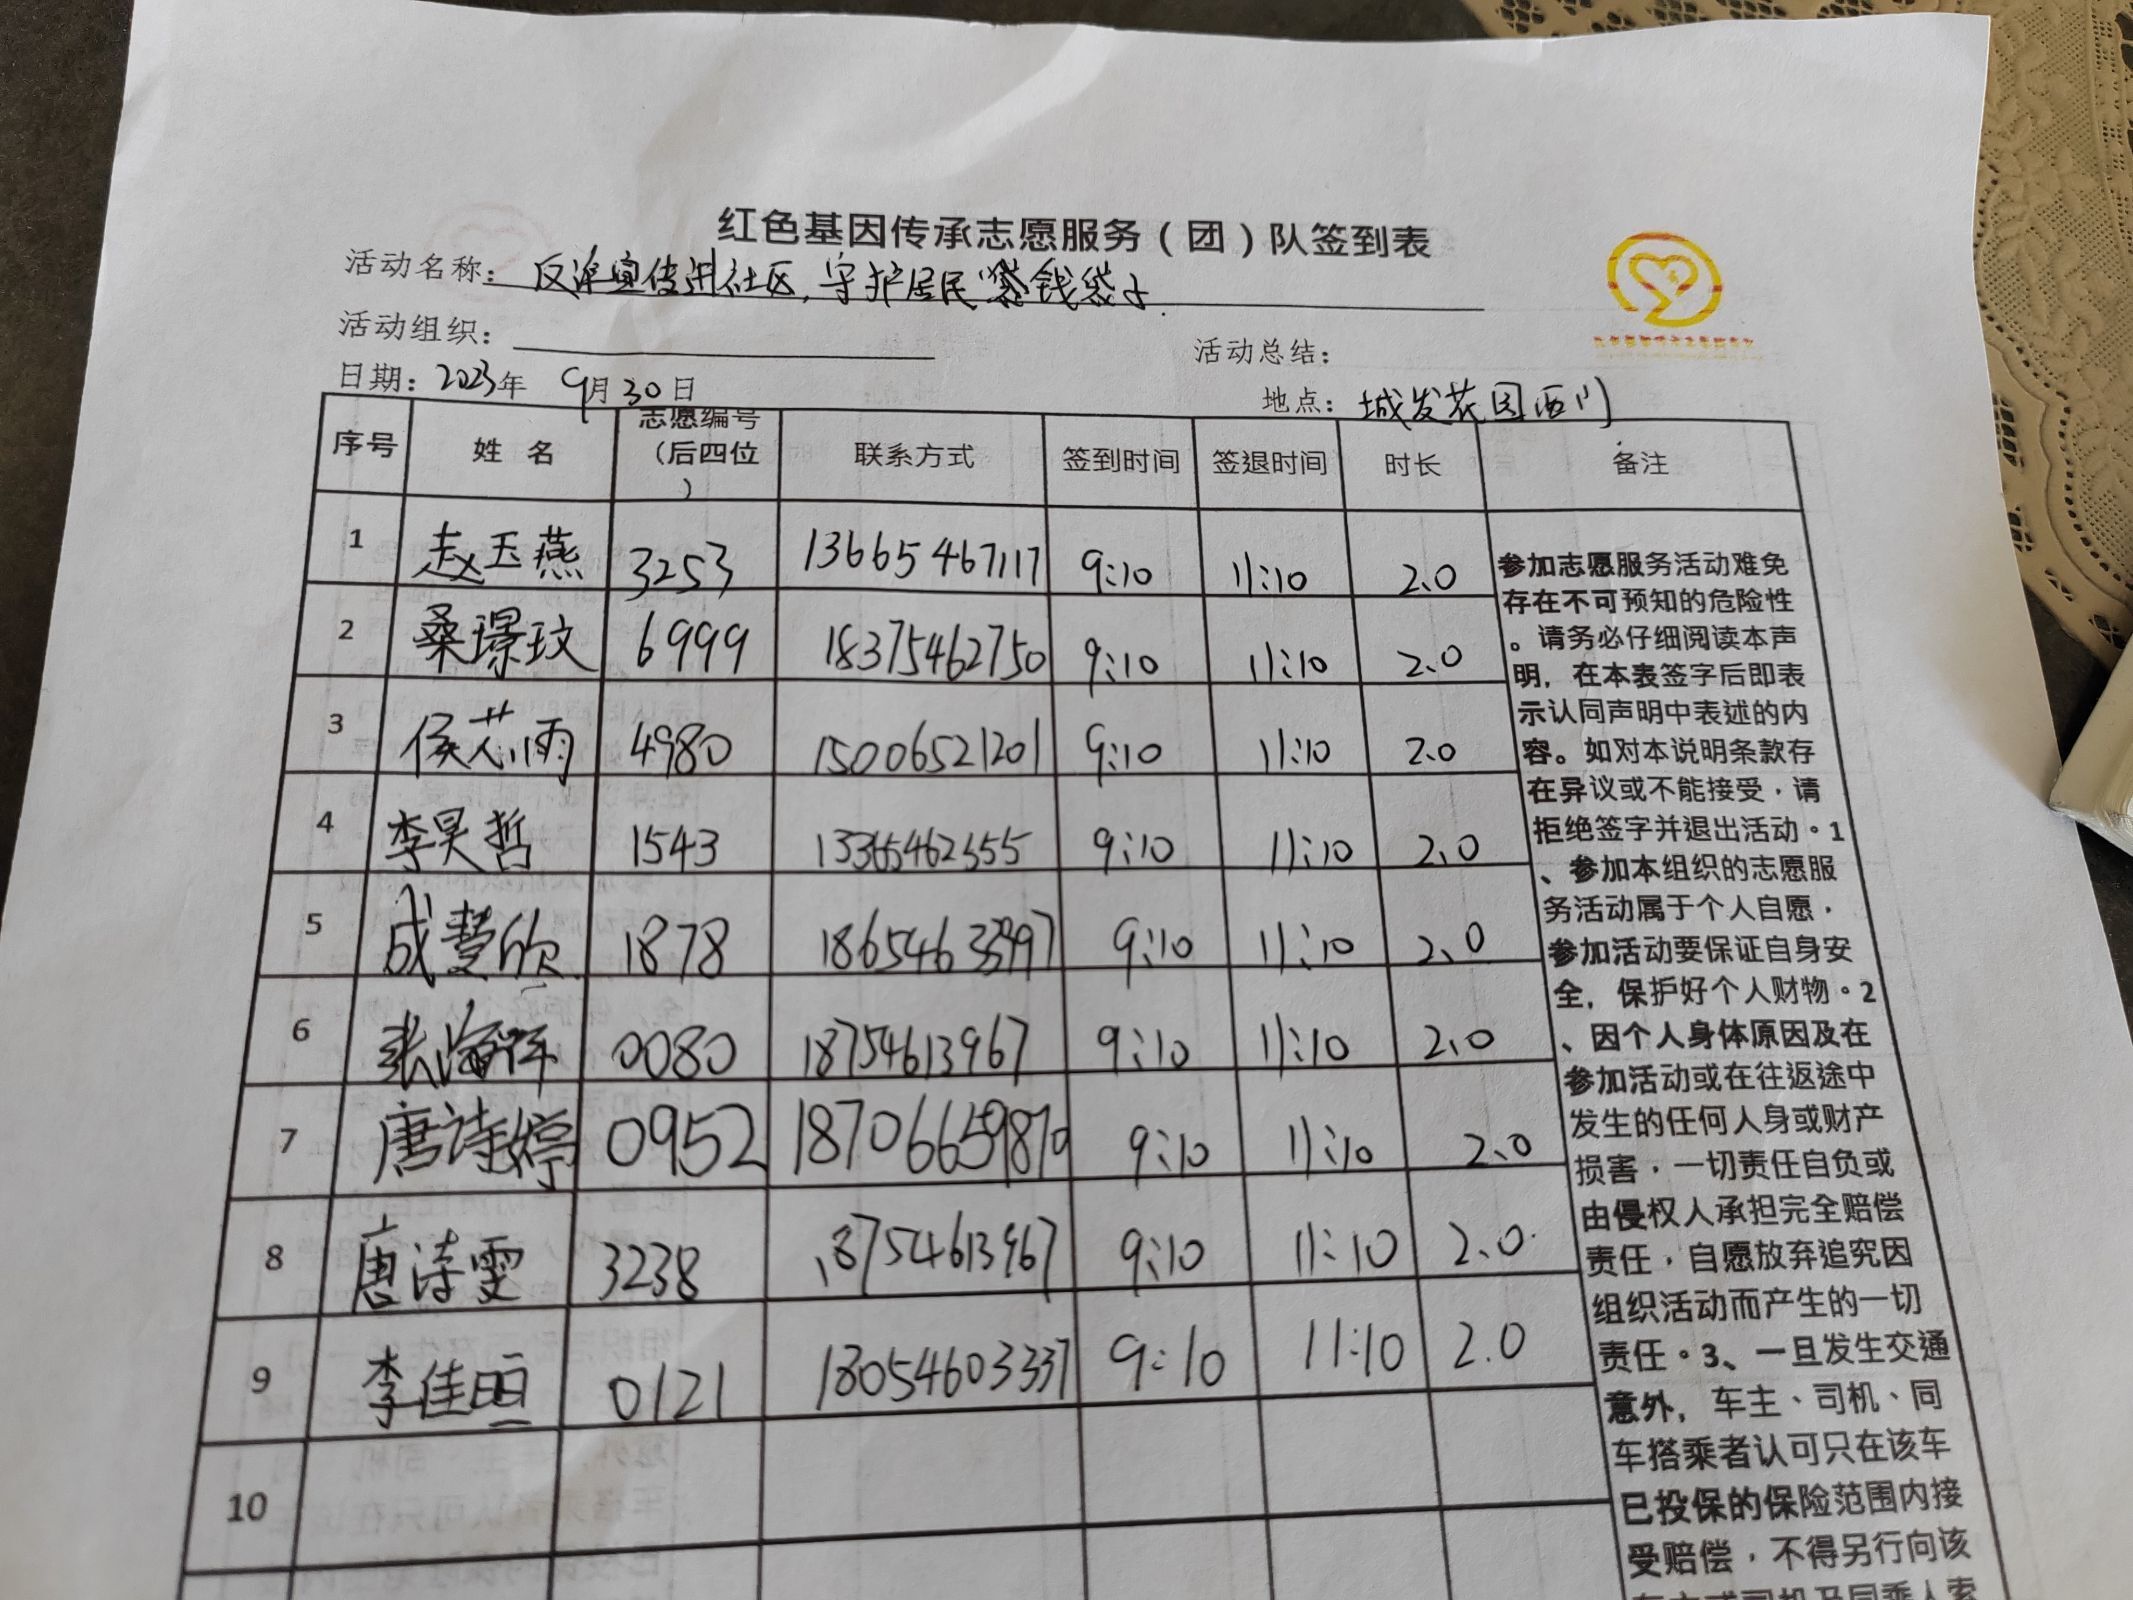 红色基因传承志愿服务（团）队签到表
活动名称：反诈宣传进社区，守护居民钱袋子
活动组织：
活动总结：
日期：2023年 9月30日
地点：城发花园西门
序号 姓名 志愿编号（后四位） 联系方式 签到时间 签退时间 时长 备注
1 赵玉燕 3253 13665467117 9:10 11:10 2.0
2 桑璟玟 6999 18375462750 9:10 11:10 2.0
3 侯芯雨 4980 15006521201 9:10 11:10 2.0
4 李昊哲 1543 9:10 11:10 2.0
5 成慧欣 1878 9:10 11:10 2.0
6 0080 18754613967 9:10 11:10 2.0
7 唐诗婷 0952 18706659870 9:10 11:10 2.0
8 唐诗雯 3238 18754613967 9:10 11:10 2.0
9 李佳暄 0121 18054603337 9:10 11:10 2.0
10
参加志愿服务活动难免
存在不可预知的危险性
。请务必仔细阅读本声
明，在本表签字后即表
示认同声明中表述的内
容。如对本说明条款存
在异议或不能接受，请
拒绝签字并退出活动。1
、参加本组织的志愿服
务活动属于个人自愿，
参加活动要保证自身安
全，保护好个人财物。2
、因个人身体原因及在
参加活动或在往返途中
发生的任何人身或财产
损害，一切责任自负或
由侵权人承担完全赔偿
责任，自愿放弃追究因
组织活动而产生的一切
责任。3、一旦发生交通
意外，车主、司机、同
车搭乘者认可只在该车
已投保的保险范围内接
受赔偿，不得另行向该
车主或司机及同乘人索